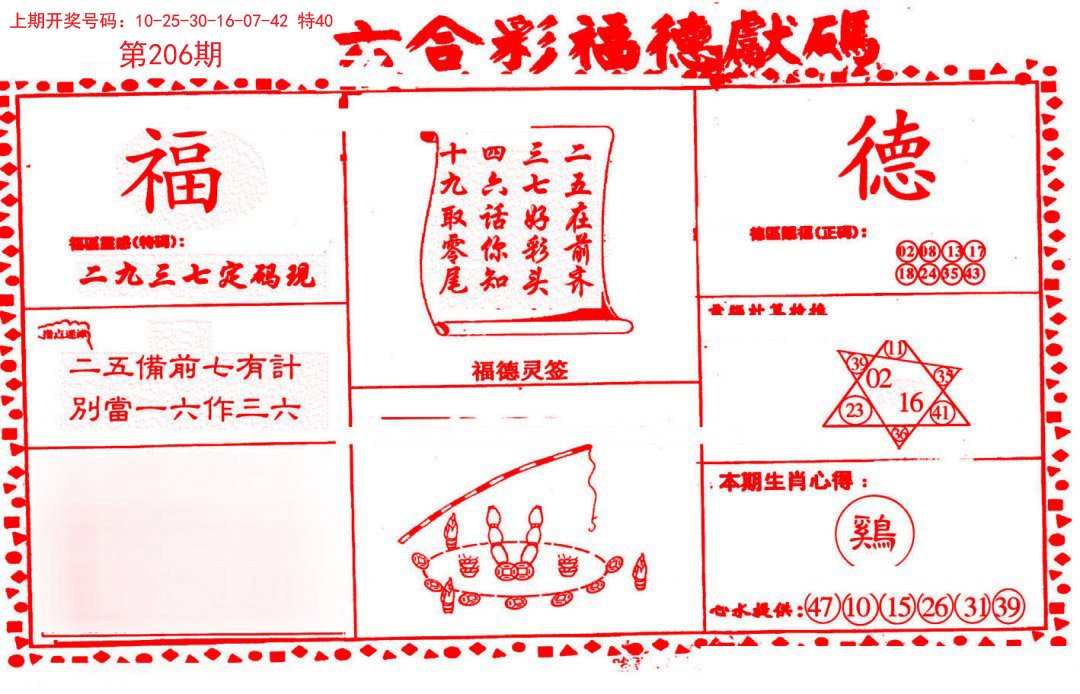 上期开奖号码：10-25-30-16-07-42 特40
第206期
六合彩福德獻碼
福
福區靈感(特碼)：
二九三七定码現
二五備前七有計
別當一六作三六
二五在前齐
三七好彩头
四六话你知
十九取零尾
福德灵签
德
德區賜福(正碼)：
02 08 13 17
18 24 35 43
11
39 02 35
23 16 41
36
本期生肖心得：
鷄
心水提供：47 10 15 26 31 39